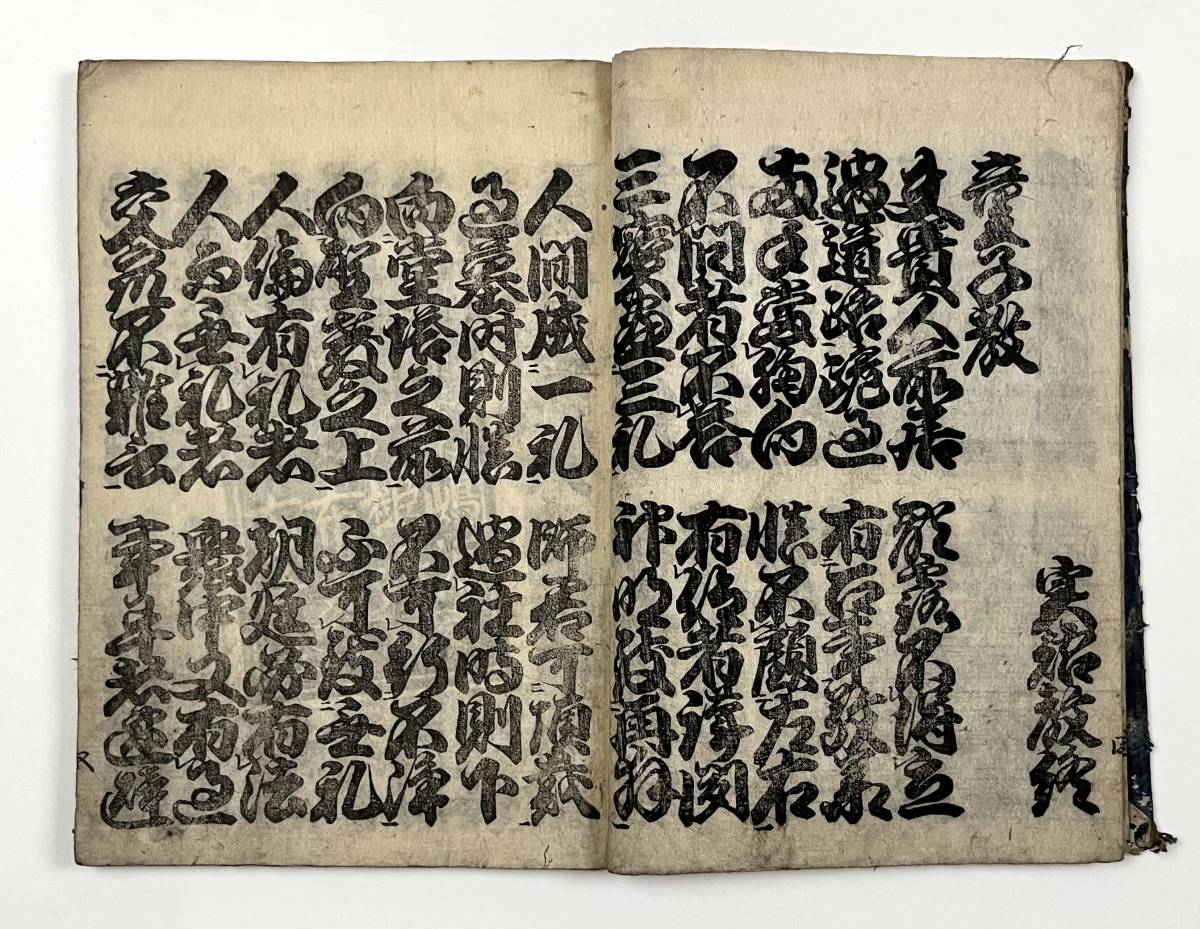 実語教終
童子教
夫貴人前居
顕露不得立
遇道路跪過
有召事敬承
両手当胸向
慎不顧左右
不問者不答
有仰者謹聞
三宝尽三礼
神明致再拝
人間成一礼
師君可頂戴
過墓時則慎
過社時則下
向堂塔之前
不可行不浄
向聖教之上
不可致無礼
人倫有礼者
朝廷必有法
人而無礼者
衆中又有過
交衆不雑言
事畢者速避